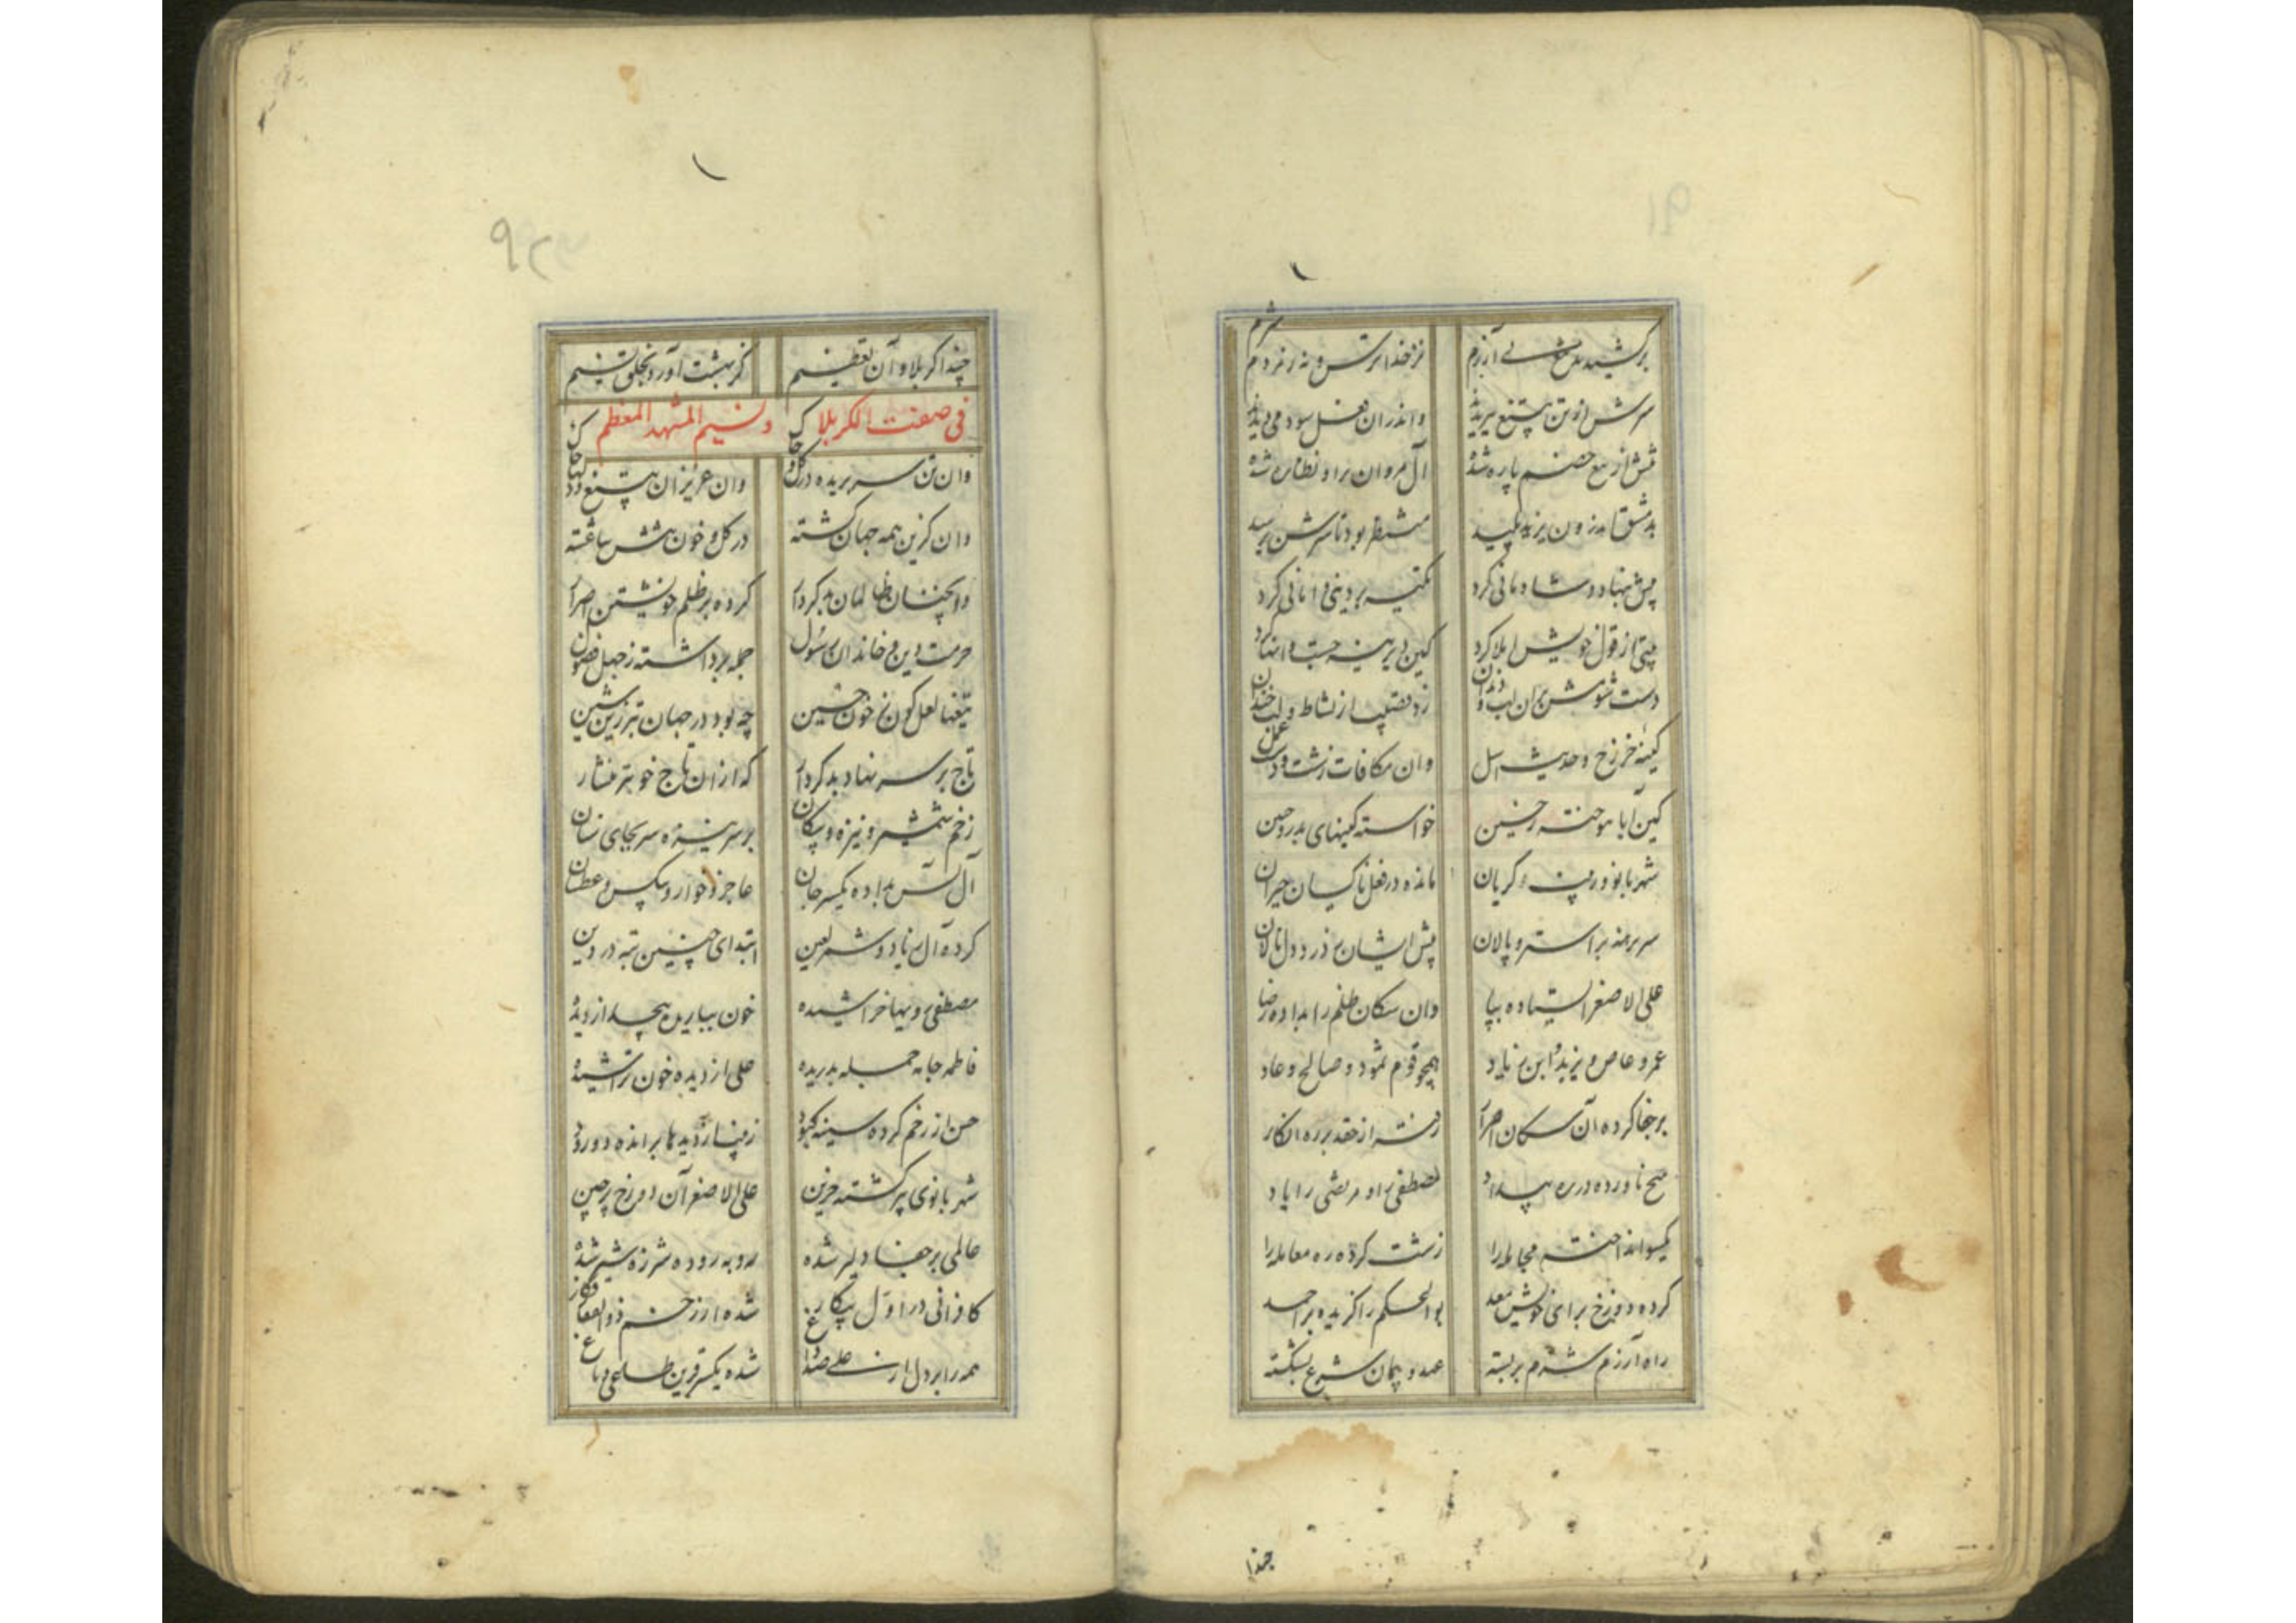 برکشیدند تیغ بی آزرم
نز خدا ترس و نه ز مردم شرم
سرش از تن بتیغ ببریدند
واندران فعل سود می دیدند
تنش از تیغ خصم پاره شده
آل مروان برو نظاره شده
بدمشق اندرون یزید پلید
منتظر بود تا سرش برسید
پیش بنهاد و شادمانی کرد
تکیه بر دینی و امانی کرد
بیتی از قول خویش املا کرد
کین دیرینه جست و انها کرد
دست شومش بران لب و دندان
زد قضیب از نشاط و لب خندان
کینه خزرج و حدیث اسل
وان مکافات زشت و درک عمل
کین آبا بتوخته ز حسین
خواسته کینهای بدر و حنین
شهربانو و زینب گریان
مانده در فعل ناکسان حیران
سر برهنه بر استر و پالان
پیش ایشان ز درد دل نالان
علی الاصغر ایستاده بپا
وان سکان ظلم را بداده رضا
عمرو عاص و یزید و ابن زیاد
همچو قوم ثمود و صالح و عاد
بر جفا کرده آن سکان اصرار
رفته از حقد بر ره انکار
هیچ ناورده در ره بیداد
مصطفی را و مرتضی را یاد
یکسو انداخته مجامله را
زشت کرده ره معامله را
کرده دوزخ برای خویش معد
بوالحکم را گزیده بر احمد
راه آزرم و شرم بربسته
عهد و پیمان شرع بشکسته
حبذا
۹۲
حبذا کربلا و آن تعظیم
کز بهشت آورد بخلق نسیم
فی صفت الکربلا و نسیم المشهد المعظم
وان تن سر بریده در گل و خاک
وان عزیزان بتیغ دلها چاک
وان گزین همه جهان کشته
در گل و خون تنش بیاغشته
وانچنان ظالمان بدکردار
کرده بر ظلم خویشتن اصرار
حرمت دین و خاندان رسول
جمله برداشته ز جهل فضول
تیغها لعل گون ز خون حسین
چه بود در جهان بتر زین شین
تاج بر سر نهاد بدکردار
که ازان تاج خوبتر منشار
زخم شمشیر و نیزه و پیکان
بر سر نیزه سر بجای سنان
آل یاسین بداده یکسر جان
عاجز و خوار و بیکس و عطشان
کرده آل زیاد و شمر لعین
ابتدای چنین تبه در دین
مصطفی رویها خراشیده
خون بباریده بیحد از دیده
فاطمه جامه جمله بدریده
علی از دیده خون تراشیده
حسن از زخم کرده سینه کبود
زینب از دیدها برانده دو رود
شهربانوی پیر گشته حزین
علی الاصغر آن دو رخ پرچین
عالمی بر جفا دلیر شده
روبه روده شرزه شیر شده
کافرانی در اول پیکار
شده از زخم ذوالفقار فکار
همه را بر دل از علی صد داغ
شده یکسر قرین طاغی و باغ